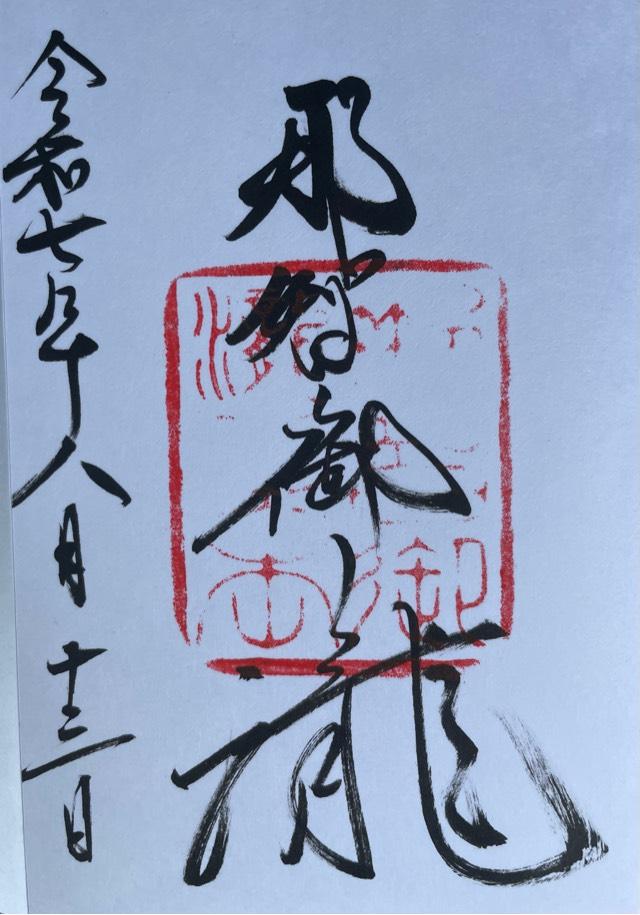 那智御瀧
令和七年八月十三日